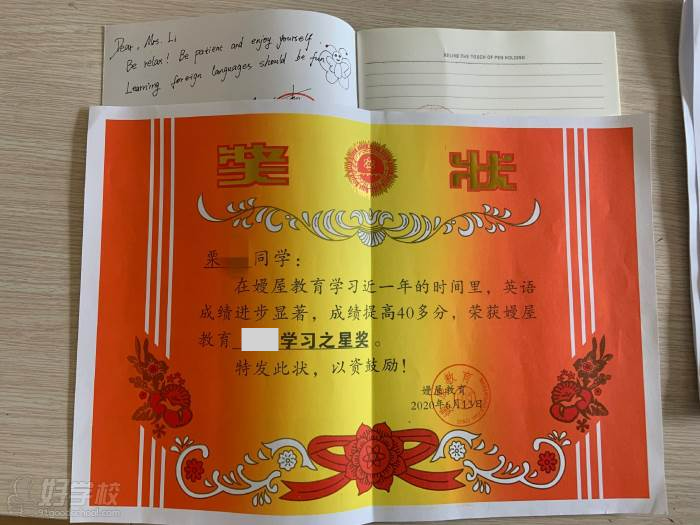 Dear, Mrs. Li
Be relax! Be patient and enjoy yourself.
Learning foreign languages should be fun.
RELIVE THE TOUCH OF PEN HOLDING
奖 状
栗 同学：
在嫚屋教育学习近一年的时间里，英语
成绩进步显著，成绩提高40多分，荣获嫚屋
教育 学习之星奖。
特发此状，以资鼓励！
嫚屋教育
2020年6月13日
好学校
91goodschool.com